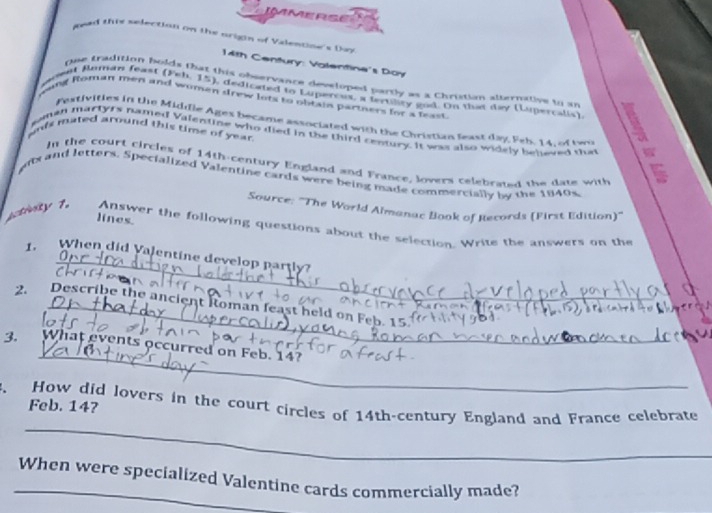 IMMERSE
Read this selection on the origin of Valentine's Day.
14th Century: Valentine's Day
One tradition holds that this observance developed partly as a Christian alternative to an
Roman feast (Feb. 15), dedicated to Lupercus, a fertility god. On that day (Lupercalis),
Roman men and women drew lots to obtain partners for a feast.
Festivities in the Middle Ages became associated with the Christian feast day, Feb. 14, of two
martyrs named Valentine who died in the third century. It was also widely believed that
mated around this time of year.
In the court circles of 14th-century England and France, lovers celebrated the date with
and letters. Specialized Valentine cards were being made commercially by the 1840s.
Source: "The World Almanac Book of Records (First Edition)"
Journeys in Life
Activity 1. Answer the following questions about the selection. Write the answers on the
lines.
1. When did Valentine develop partly?
One tradition holds that this observance developed partly as a
christian alternative to an ancient Roman feast (Feb. 15), dedicated to
2. Describe the ancient Roman feast held on Feb. 15. fertility god.
On that day (lupercalis), young Roman men and women
lots to obtain partners for a feast.
3. What events occurred on Feb. 14?
Valentine's day
. How did lovers in the court circles of 14th-century England and France celebrate
Feb. 14?
When were specialized Valentine cards commercially made?